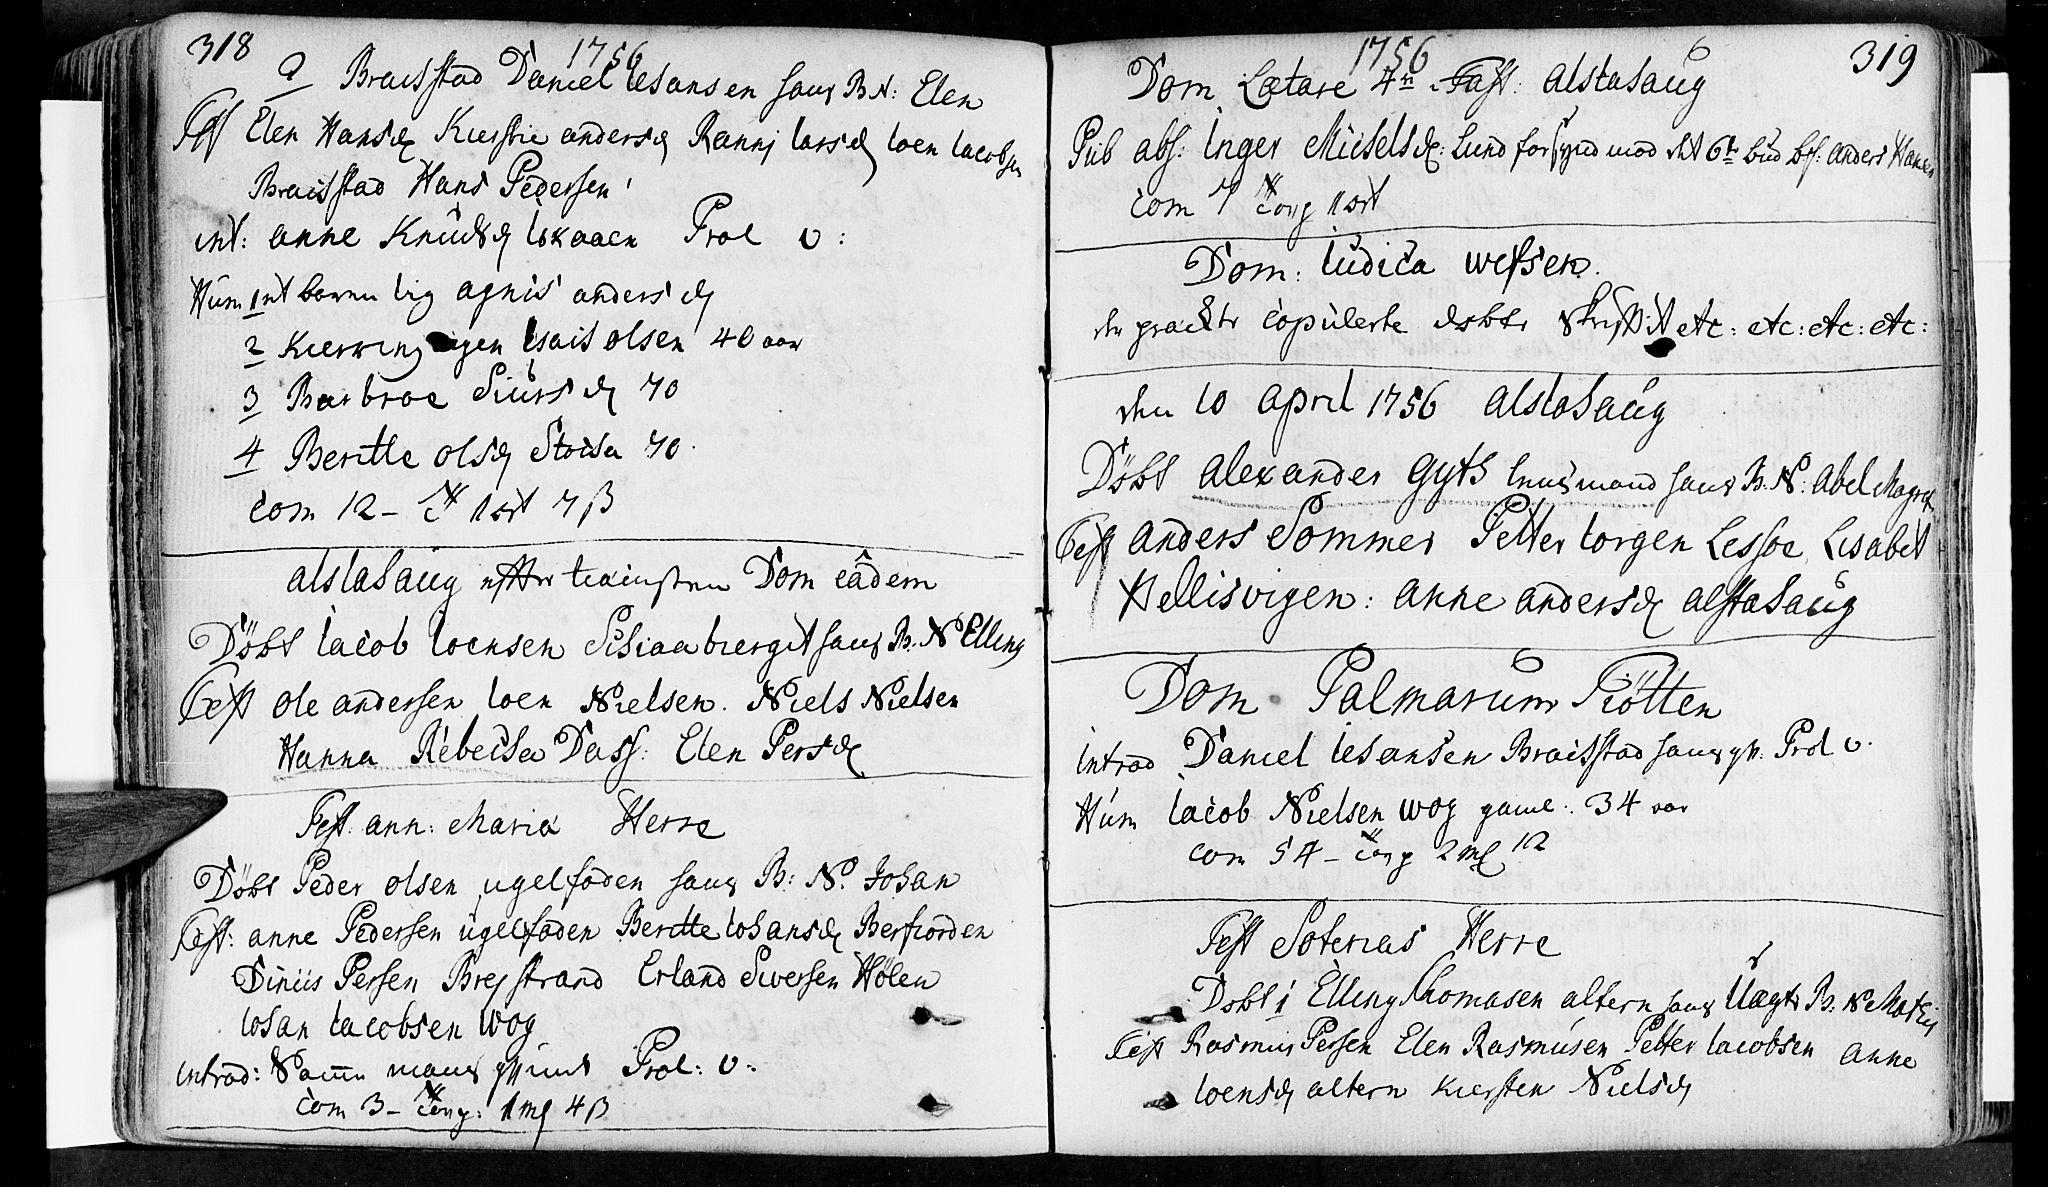 318
1756
2 Braiffstad Daniel Iesansen hans B N: Elen
Test Elen Hansd Kierstie andersd Ranni larsd Ioen Iacobsen
Braiffstad Hans Pedersen
int: anne Knudsd Prol v:
Hum 1 agnis andersd
2 Kierring Isais olsen 40 aar
3 Barbroe Siursd 70
4 Beritte olsd 70
com 12 - 1 ort 7 β
alstahaug effter Dom eâdem
Döbt Iacob Ioensen hans B. N Elling
Test ole andersen Ioen Nielsen. Niels Nielsen
Hanna Rebecha Dass: Elen Persd
Fest: ann: Maria Herre
Döbt Peder olsen ugelfoden hans B: N. Johan
Test: anne Pedersen ugelfoden Beritte Iohansd Berfiorden
Dinius Persen Breystrand Erland Siversen Hölen
Iohan Iacobsen Wog
introd: Prol: v:
com 3 - cong: 1 mk 4 β
319
1756
Dom Lætare 4 Fast: alstahaug
Pub abs: Inger Michelsd: Lund for synd mod det 6te bud anders Hansen
com 7 cong 1 ort
Dom: Iudica Wefsen.
copulerte etc: etc: etc: etc:
den 10 april 1756 alstahaug
Döbt alexander gyth huusmand hans B: N: abel Magret
Test anders Sommer Petter Iorgen Lessoe Lisabet
Hellisvigen: anne andersd alstahaug
Dom Palmarum Tiötten
introd Daniel Iesansen Braiffstad hans Prol v.
Hum Iacob Nielsen Wog gaml: 34 aar
com 54 - cong 2 mk 12
Fest Soterias Herre
Döbt 1 Elling Thomasen altern hans B: N
Test Rasmus Persen Elen Rasmusen Petter Iacobsen anne
Ioensd altern Kiersten Nielsd